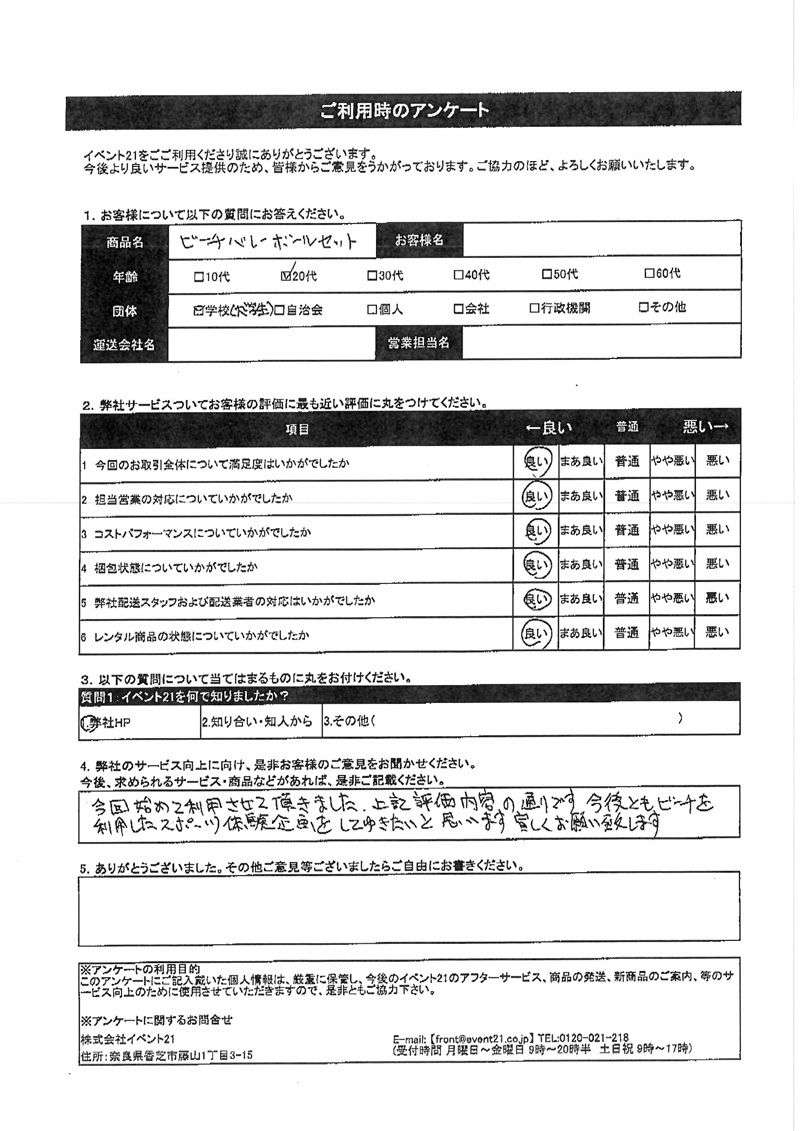 ご利用時のアンケート
イベント21をご利用くださり誠にありがとうございます。
今後より良いサービス提供のため、皆様からご意見をうかがっております。ご協力のほど、よろしくお願いいたします。
1. お客様について以下の質問にお答えください。
商品名 ビーチバレーボールセット お客様名
年齢 □10代 ☑20代 □30代 □40代 □50代 □60代
団体 ☑学校(大学生) □自治会 □個人 □会社 □行政機関 □その他
運送会社名 営業担当名
2. 弊社サービスついてお客様の評価に最も近い評価に丸をつけてください。
項目 ←良い 普通 悪い→
1 今回のお取引全体について満足度はいかがでしたか 良い まあ良い 普通 やや悪い 悪い
2 担当営業の対応についていかがでしたか 良い まあ良い 普通 やや悪い 悪い
3 コストパフォーマンスについていかがでしたか 良い まあ良い 普通 やや悪い 悪い
4 梱包状態についていかがでしたか 良い まあ良い 普通 やや悪い 悪い
5 弊社配送スタッフおよび配送業者の対応はいかがでしたか 良い まあ良い 普通 やや悪い 悪い
6 レンタル商品の状態についていかがでしたか 良い まあ良い 普通 やや悪い 悪い
3. 以下の質問について当てはまるものに丸をお付けください。
質問1:イベント21を何で知りましたか?
1.弊社HP 2.知り合い・知人から 3.その他( )
4. 弊社のサービス向上に向け、是非お客様のご意見をお聞かせください。
今後、求められるサービス・商品などがあれば、是非ご記載ください。
今回始めて利用させて頂きました、上記評価内容の通りです 今後ともビーチを
利用したスポーツ体験企画をしてゆきたいと思います 宜しくお願い致します
5. ありがとうございました。その他ご意見等ございましたらご自由にお書きください。
※アンケートの利用目的
このアンケートにご記入戴いた個人情報は、厳重に保管し、今後のイベント21のアフターサービス、商品の発送、新商品のご案内、等のサ
ービス向上のために使用させていただきますので、是非ともご協力下さい。
※アンケートに関するお問合せ
株式会社イベント21 E-mail:【front@event21.co.jp】 TEL:0120-021-218
住所:奈良県香芝市藤山1丁目3-15 (受付時間 月曜日～金曜日 9時～20時半 土日祝 9時～17時)